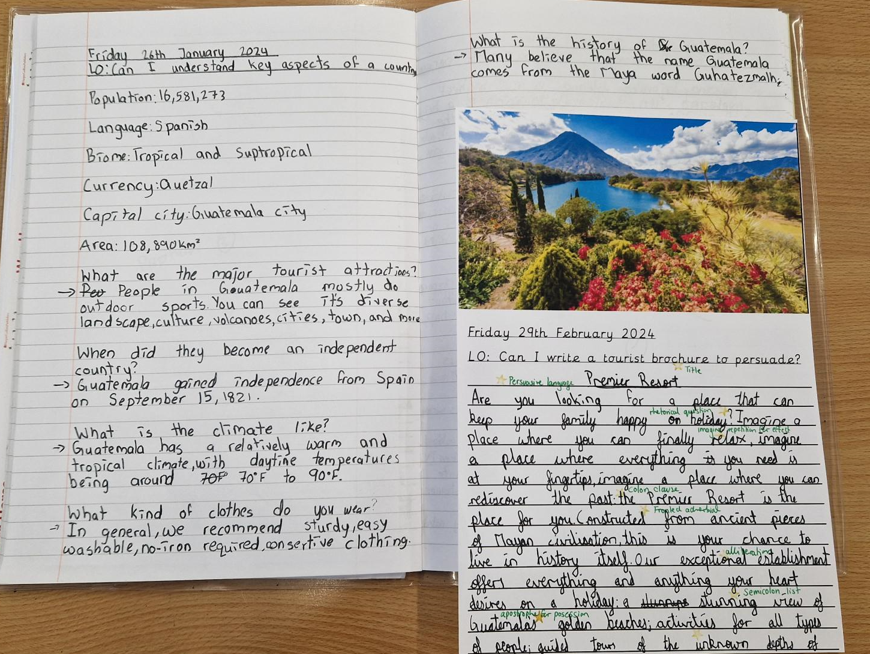 Friday 26th January 2024
LO: Can I understand key aspects of a country
Population: 16,581,273
Language: Spanish
Biome: Tropical and Suptropical
Currency: Quetzal
Capital city: Guatemala city
Area: 108,890km²
What are the major tourist attractions?
→ People in Gouatemala mostly do
outdoor sports. You can see it's diverse
landscape, culture, volcanoes, cities, town, and more
When did they become an independent
country?
→ Guatemala gained independence from Spain
on September 15, 1821.
What is the climate like?
→ Guatemala has a relatively warm and
tropical climate, with daytime temperatures
being around 70F 70°F to 90°F.
What kind of clothes do you wear?
→ In general, we recommend sturdy, easy
washable, no-iron required, consertive clothing.
What is the history of Guatemala?
→ Many believe that the name Guatemala
comes from the Maya word Guhatezmalh,
Friday 29th February 2024
LO: Can I write a tourist brochure to persuade?
Title
Persuasive language Premier Resort
Are you looking for a place that can
rhetorical question
keep your family happy on holiday? Imagine a
imagine repetition for effect
place where you can finally relax, imagine
a place where everything you need is
at your fingertips, imagine a place where you can
colon clause
rediscover the past: the Premier Resort is the
Fronted adverbial
place for you. Constructed from ancient pieces
of Mayan civilisation, this is your chance to
live in history itself. Our exceptional establishment
alliteration
offers everything and anything your heart
Semicolon list
desires on a holiday: a stunning view of
apostrophe for possession
Guatemalas golden beaches; activities for all types
of people; guided tours of the unknown depths of